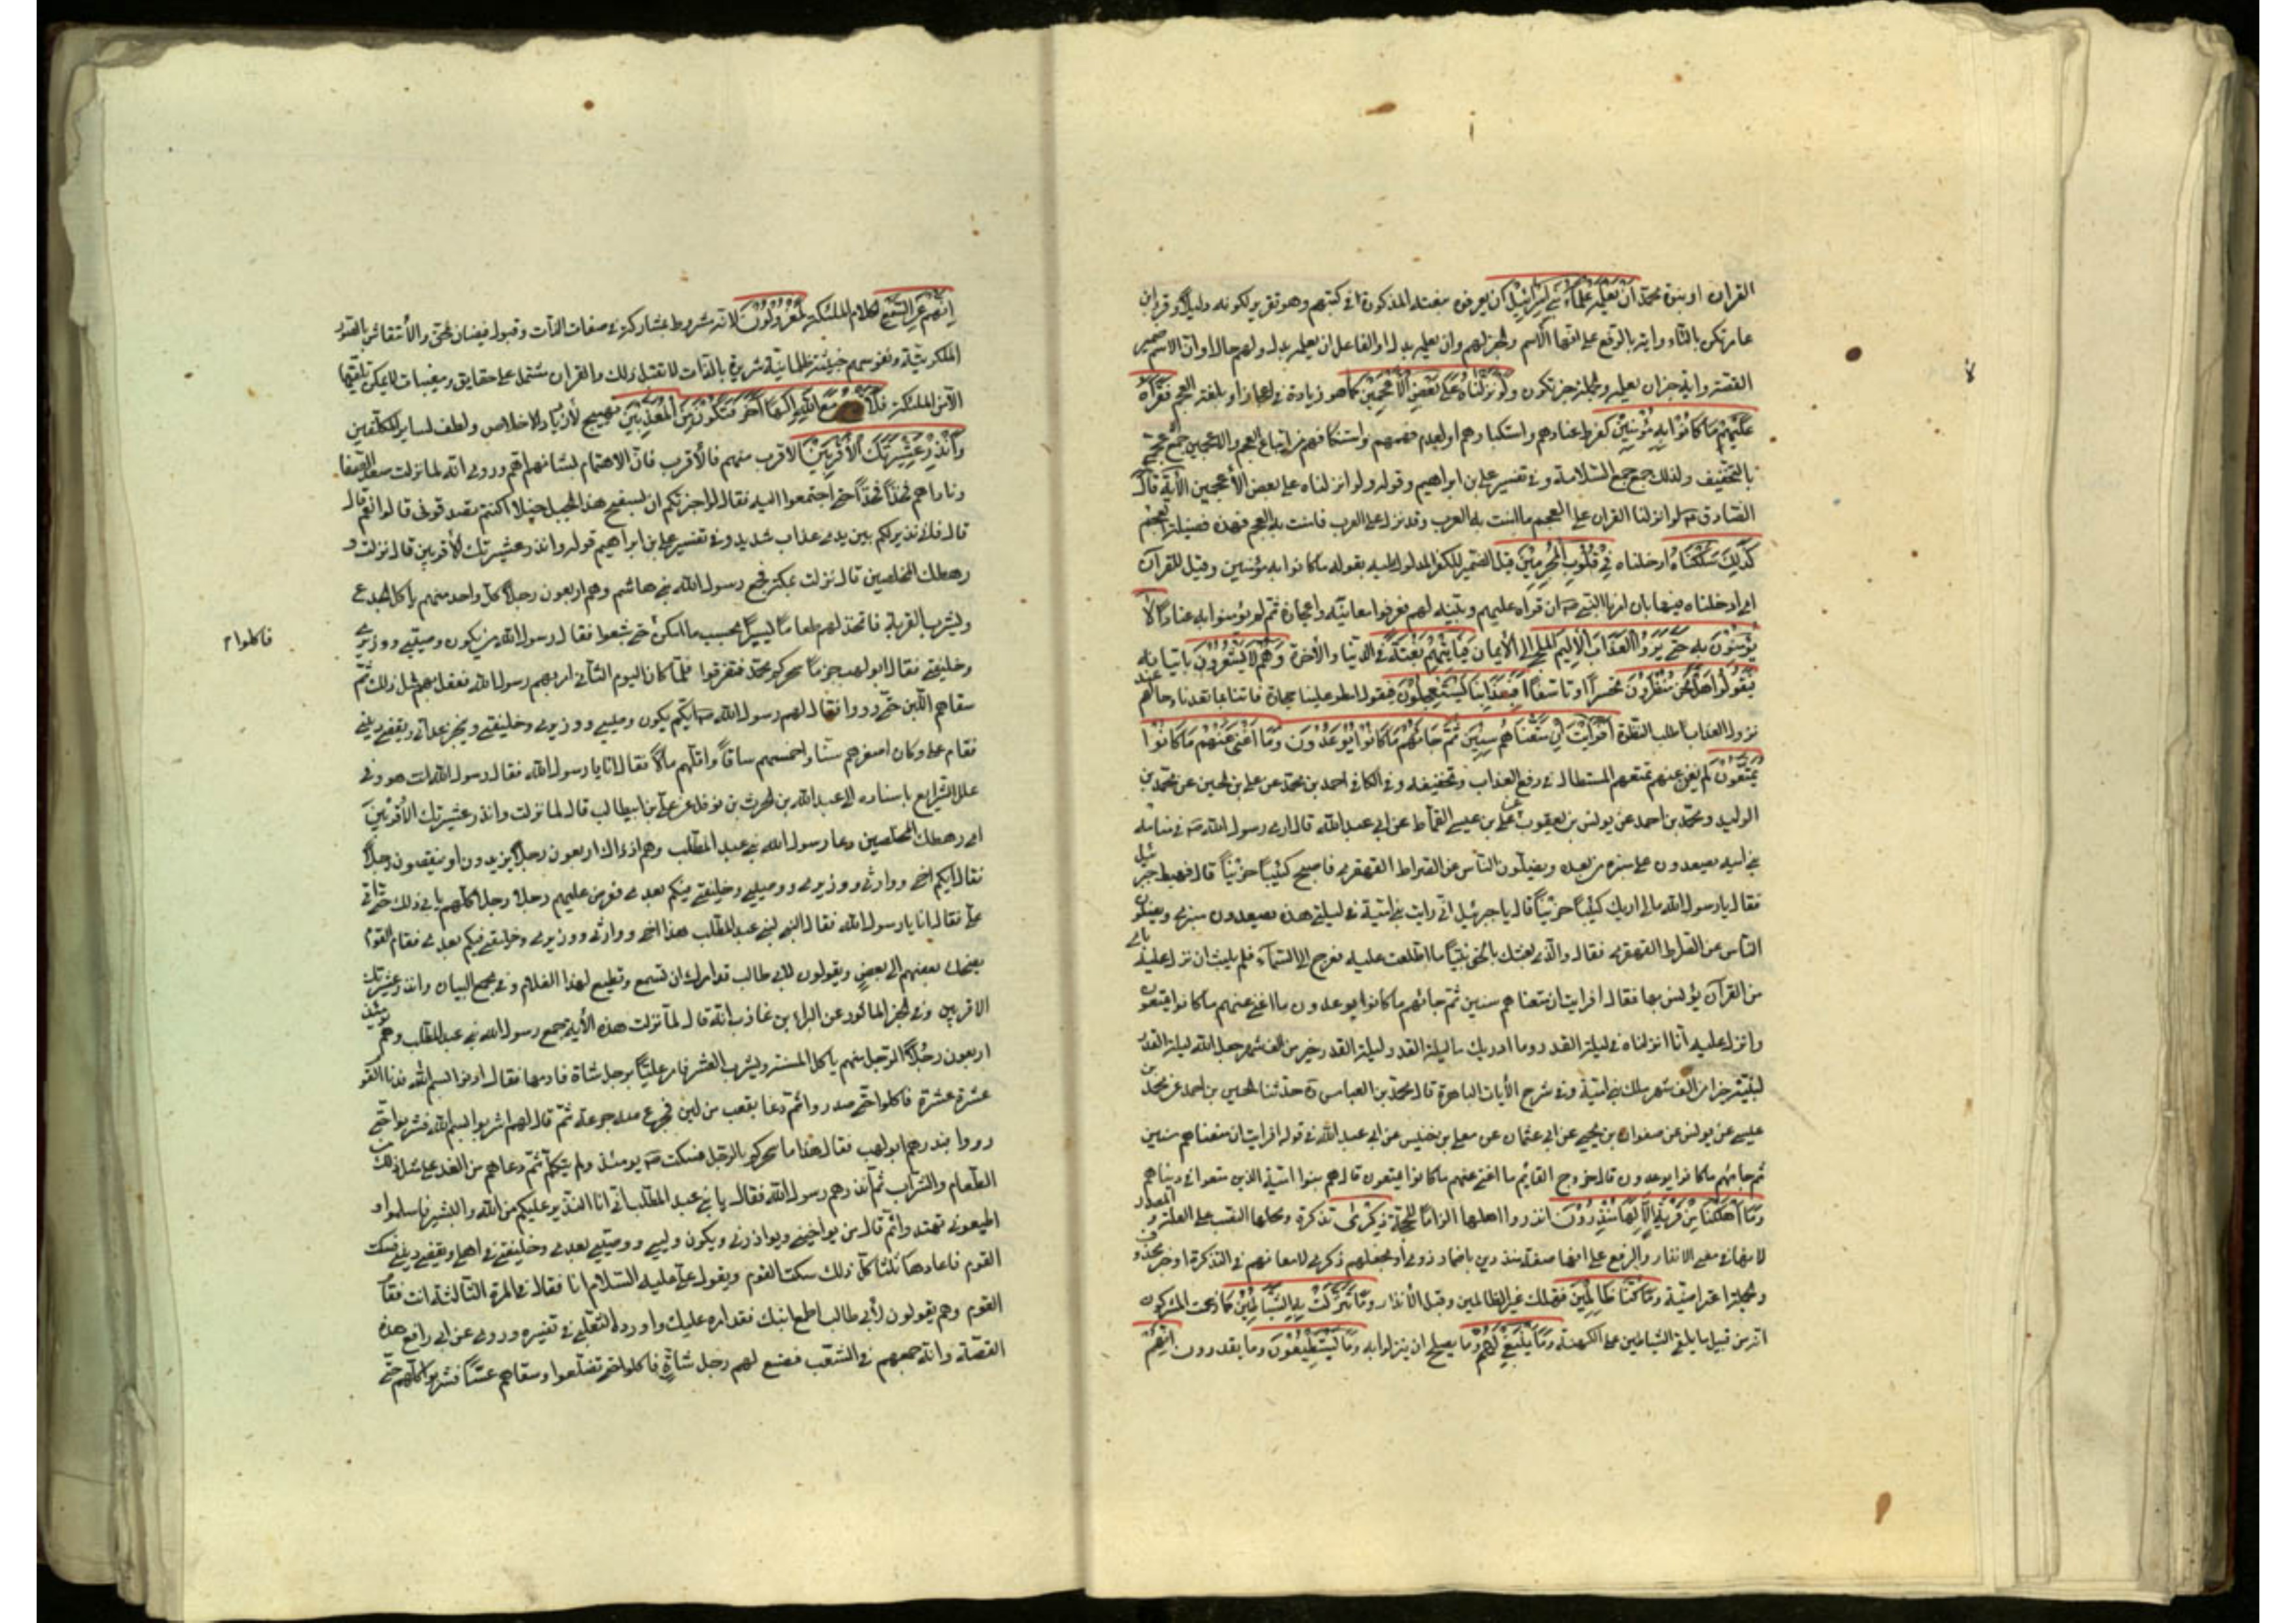 القرآن او بنبوة محمد أَنْ يَعْلَمَهُ عُلَمَاءُ بَنِي إِسْرَائِيلَ ان يعرفوه بنعته المذكورة في كتبهم وهو تقرير لكونه دليلا وقرأ ابن
عامر تكن بالتاء واية بالرفع على انها الاسم والخبر لهم وان يعلمه بدل او الفاعل ان يعلمه بدل ولهم حال او ان الاسم ضمير
القصة واية خبر ان يعلمه والجملة خبر تكون وَلَوْ نَزَّلْنَاهُ عَلَىٰ بَعْضِ الْأَعْجَمِينَ كما هو زيادة في اعجازه او بلغة العجم فَقَرَأَهُ
عَلَيْهِمْ مَا كَانُوا بِهِ مُؤْمِنِينَ لفرط عنادهم واستكبارهم او لعدم فهمهم واستنكافهم من اتباع العجم والاعجمين جمع اعجمي
بالتخفيف ولذلك جمع جمع السلامة وفي تفسير علي بن ابراهيم وقوله ولو انزلناه على بعض الأعجمين الآية قال
الصادق لو انزلنا القران على العجم ما امنت به العرب وقد نزل على العرب فامنت به العجم فهذه فضيلة العجم
كَذَٰلِكَ سَلَكْنَاهُ ادخلناه فِي قُلُوبِ الْمُجْرِمِينَ قيل الضمير للكفر المدلول عليه بقوله ما كانوا به مؤمنين وقيل للقرآن
اي ادخلناه فيها بان امرنا النبي ص ان قراه عليهم وبينه لهم فعرفوا معانيه واعجازه ثم لم يؤمنوا به عنادا لَا
يُؤْمِنُونَ بِهِ حَتَّىٰ يَرَوُا الْعَذَابَ الْأَلِيمَ الملجئ الى الأيمان فَيَأْتِيَهُمْ بَغْتَةً في الدنيا والأخرة وَهُمْ لَا يَشْعُرُونَ باتيانه
فَيَقُولُوا هَلْ نَحْنُ مُنْظَرُونَ تحسرا وتاسفا أَفَبِعَذَابِنَا يَسْتَعْجِلُونَ فيقول امطر علينا حجارة فاتنا بما تعدنا وحالهم عند
نزول العذاب طلب النظرة أَفَرَأَيْتَ إِنْ مَتَّعْنَاهُمْ سِنِينَ ثُمَّ جَاءَهُمْ مَا كَانُوا يُوعَدُونَ وَمَا أَغْنَىٰ عَنْهُمْ مَا كَانُوا
يُمَتَّعُونَ لم يغن عنهم تمتعهم المستطال في دفع العذاب وتخفيفه وفي الكافي احمد بن محمد عن علي بن الحسين عن محمد بن
الوليد ومحمد بن احمد عن يونس بن يعقوب عن علي بن عيسى القماط عن ابي عبد الله قال اري رسول الله ص في منامه
بني امية يصعدون على منبره من بعده ويضلون الناس عن الصراط القهقرى فاصبح كئيبا حزينا قال فهبط جبرئيل
فقال يا رسول الله مالي اريك كئيبا حزينا قال يا جبرئيل اني رايت بني امية في ليلتي هذه يصعدون منبري ويضلون
الناس عن الصراط القهقرى فقال والذي بعثك بالحق نبيا ما اطلعت عليه فعرج الى السماء فلم يلبث ان نزل عليه باي
من القرآن يؤنس بها فقال افرايت ان متعناهم سنين ثم جائهم ما كانوا يوعدون ما اغنى عنهم ما كانوا يمتعون
وانزل عليه انا انزلناه في ليلة القدر وما ادريك ما ليلة القدر ليلة القدر خير من الف شهر جعل الله ليلة القدر
لنبيه خيرا من الف شهر ملك بني امية وفي شرح الأيات الباهرة قال محمد بن العباس ره حدثنا الحسين بن احمد عن محمد بن
عيسى عن يونس عن صفوان بن يحيى عن ابي عثمان عن معلى بن خنيس عن ابي عبد الله في قوله افرايت ان متعناهم سنين
ثم جائهم ما كانوا يوعدون قال خروج القايم ما اغنى عنهم ما كانوا يمتعون قال هم بنوا امية الذين متعوا في دنياهم
وَمَا أَهْلَكْنَا مِنْ قَرْيَةٍ إِلَّا لَهَا مُنْذِرُونَ انذروا اهلها الزاما للحجة ذِكْرَىٰ تذكرة ومحلها النصب على العلة والمصدر
لانها في معنى الانذار والرفع على انها صفة منذرون باضمار ذوو او بجعلهم ذكرى لامعانهم في التذكرة او خبر محذوف
والجملة اعتراضية وَمَا كُنَّا ظَالِمِينَ فنهلك غير الظالمين وقبل الأنذار وَمَا تَنَزَّلَتْ بِهِ الشَّيَاطِينُ كما زعمت المشركون
انه من قبيل ما يلقي الشياطين على الكهنة وَمَا يَنْبَغِي لَهُمْ وما يصلح ان يتنزلوا به وَمَا يَسْتَطِيعُونَ وما يقدرون إِنَّهُمْ
إِنَّهُمْ عَنِ السَّمْعِ لكلام الملئكة لَمَعْزُولُونَ لانه مشروط بمشاركة في صفات الذات وقبول فيضان الحق والأنتقاش بالصور
الملكوتية ونفوسهم خبيثة ظلمانية شريرة بالذات لا تقبل ذلك والقران مشتمل على حقايق ومغيبات لا يمكن تلقيها
الأ من الملئكة فَلَا مَعَ اللَّهِ إِلَٰهًا آخَرَ فَتَكُونَ مِنَ الْمُعَذَّبِينَ تهييج لأزدياد الاخلاص ولطف لساير المكلفين
وَأَنْذِرْ عَشِيرَتَكَ الْأَقْرَبِينَ الأقرب منهم فالأقرب فان الاهتمام بشانهم اهم وروي انه لما نزلت صعد الصفا
وناداهم فخذا فخذا حتى اجتمعوا اليه فقال لو اخبرتكم ان بسفح هذا الجبل خيلا اكنتم مصدقوني قالوا نعم قال
قال فاني نذير لكم بين يدي عذاب شديد وفي تفسير علي بن ابراهيم قوله وانذر عشيرتك الأقربين قال نزلت و
رهطك المخلصين قال نزلت بمكة فجمع رسول الله بني هاشم وهم اربعون رجلا كل واحد منهم ياكل الجذع
ويشرب القربة فاتخذ لهم طعاما يسيرا بحسب ما امكن حتى شبعوا فقال رسول الله من يكون وصيي ووزيري
فاكلوا م
وخليفتي فقال ابو لهب جزما سحركم محمد فتفرقوا فلما كان اليوم الثاني امر بهم رسول الله ففعل بهم مثل ذلك ثم
سقاهم اللبن حتى رووا فقال لهم رسول الله ص ايكم يكون وصيي ووزيري وخليفتي وينجز عداتي ويقضي ديني
فقام علي وكان اصغرهم سنا واحمشهم ساقا واقلهم مالا فقال انا يا رسول الله فقال رسول الله انت هو وفي
علل الشرايع باسناده الى عبد الله بن الحرث بن نوفل عن علي بن ابيطالب قال لما نزلت وانذر عشيرتك الأقربين
اي رهطك المخلصين دعا رسول الله بني عبد المطلب وهم اذ ذاك اربعون رجلا يزيدون او ينقصون رجلا
فقال ايكم اخي ووارثي ووزيري ووصيي وخليفتي فيكم بعدي فعرض عليهم رجلا رجلا كلهم يابى ذلك حتى اتى
علي فقال انا يا رسول الله فقال النبي لبني عبد المطلب هذا اخي ووارثي ووزيري وخليفتي فيكم بعدي فقام القوم
يضحك بعضهم الى بعض ويقولون لابي طالب قد امرك ان تسمع وتطيع لهذا الغلام وفي مجمع البيان وانذر عشيرتك
الاقربين وفي الخبر الماثور عن البراء بن عاذب انه قال لما نزلت هذه الأية جمع رسول الله بني عبد المطلب وهم يومئذ
اربعون رجلا الرجل منهم ياكل المسنة ويشرب العس فامر عليا برجل شاة فادمها فقال ادنوا بسم الله فدنا القوم
عشرة عشرة فاكلوا حتى صدروا ثم دعا بقعب من لبن فجرع منه جرعة ثم قال لهم اشربوا بسم الله فشربوا حتى
رووا فبدرهم ابو لهب فقال هذا ما سحركم به الرجل فسكت ص يومئذ ولم يتكلم ثم دعاهم من الغد على مثل ذلك من
الطعام والشراب ثم انذرهم رسول الله فقال يا بني عبد المطلب اني انا النذير عليكم من الله والبشير فاسلموا و
اطيعوني تهتدوا ثم قال من يواخيني ويوازرني ويكون وليي ووصيي بعدي وخليفتي في اهلي ويقضي ديني فسكت
القوم فاعادها ثلثا كل ذلك سكت القوم ويقول علي عليه السلام انا فقال في المرة الثالثة انت فقام
القوم وهم يقولون لأبي طالب اطع ابنك فقد امره عليك واورده الثعلبي في تفسيره وروي عن ابي رافع هذه
القصة وانه جمعهم في الشعب فصنع لهم رجل شاة فاكلوا حتى تضلعوا وسقاهم عسا فشربوا كلهم حتى